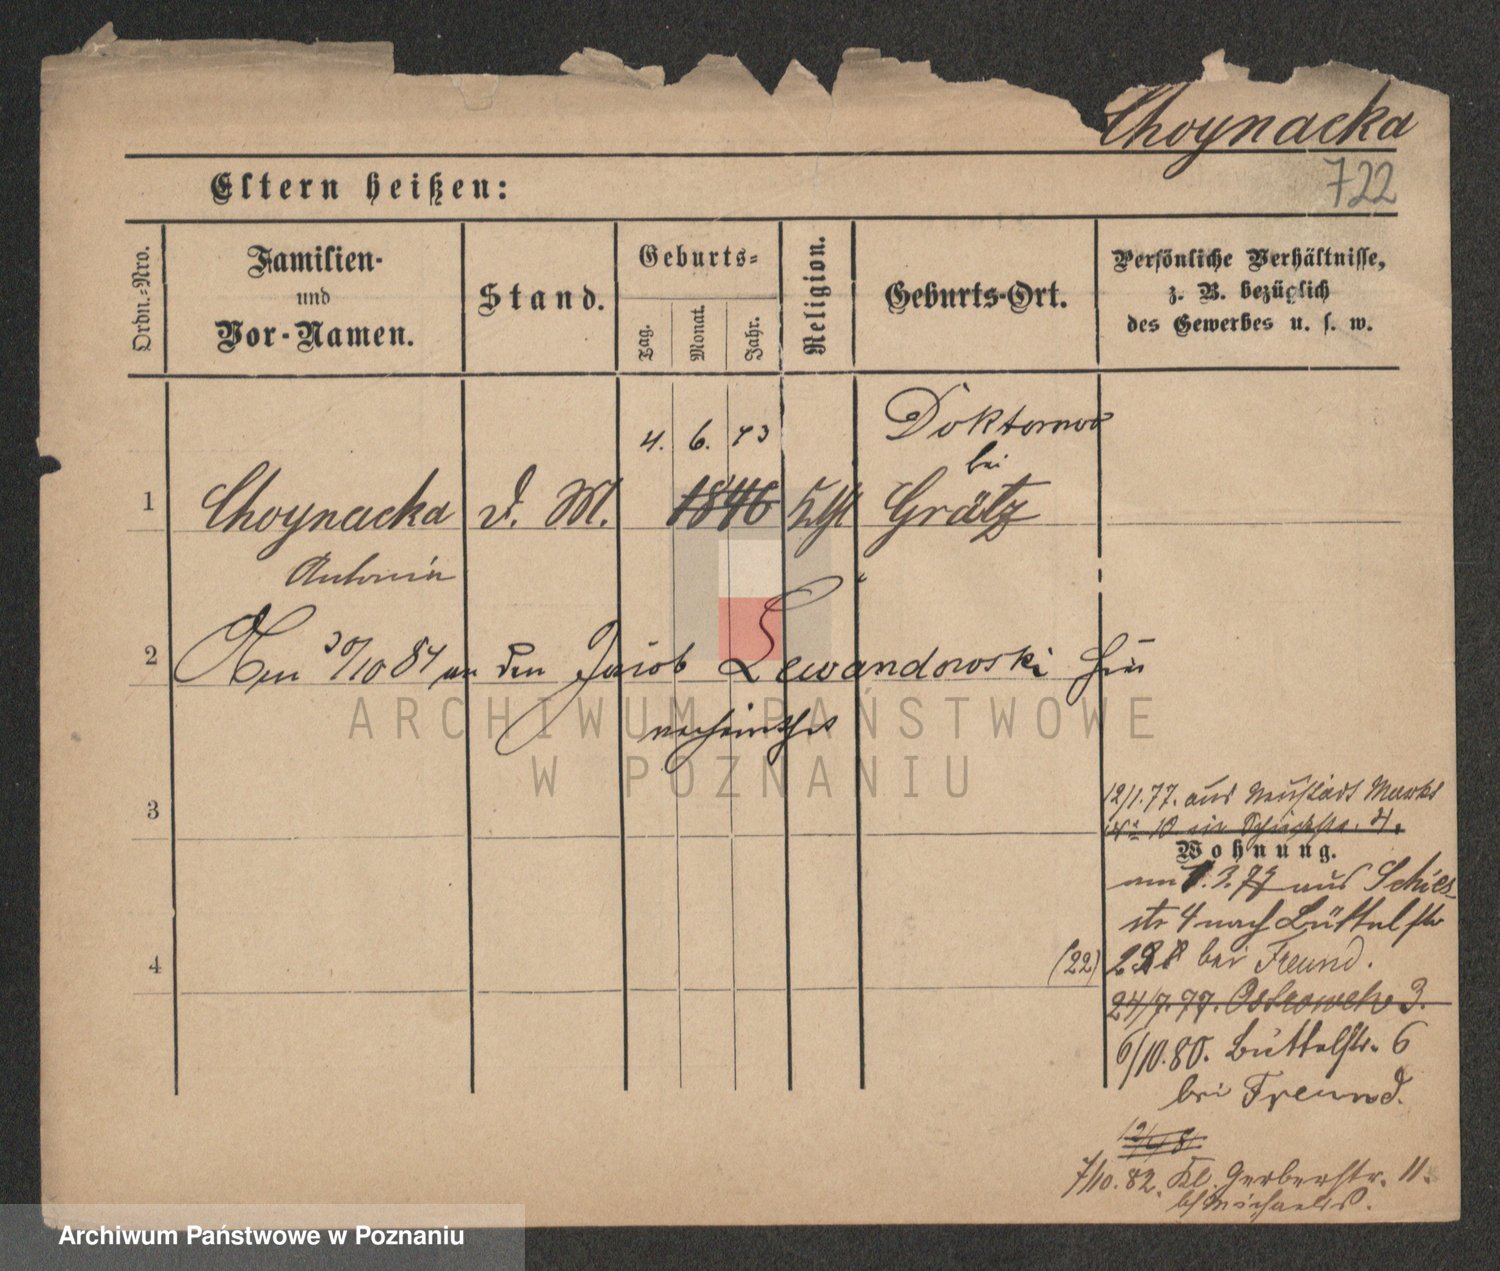 Choynacka
722
Eltern heißen:
Ordn.-Nro.
Familien-
und
Vor-Namen.
Stand.
Geburts-
Tag.
Monat.
Jahr.
Religion.
Geburts-Ort.
Persönliche Verhältnisse,
z. B. bezüglich
des Gewerbes u. s. w.
4. 6. 43
Doktorowo
bei
1 Choynacka d. M. 1846 kth Grätz
Antonia
2 30/10 84 an den Jacob Lewandowski hier
verheirathet
ARCHIWUM PAŃSTWOWE
W POZNANIU
3
12/1.77. aus Neustädt Markt
10 in 4.
Wohnung.
am 1.3.77 aus Schies
str 4 nach Büttelstr
4
(22) bei Freund.
24/7.77. Ostrowek 3.
6/10.80. Büttelstr. 6
bei Freund.
7/10.82. Kl. Gerberstr. 11.
b/ Michaelis.
Archiwum Państwowe w Poznaniu